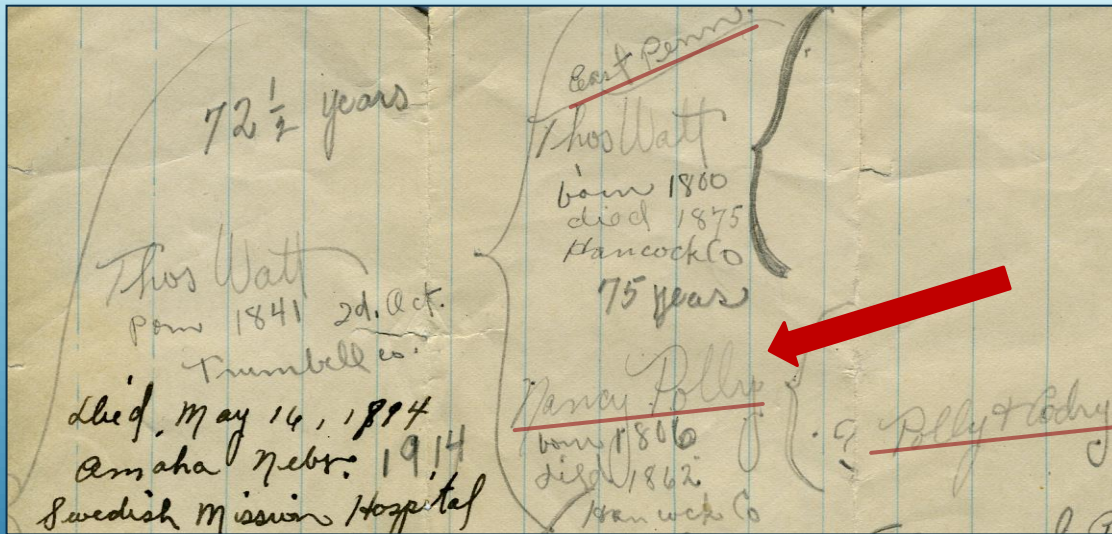 72 ½ years
Thos Watt
born 1841 2d. Oct.
Trumbell co.
Died, May 16, 1894
Omaha Nebr. 1914
Swedish Mission Hospital
East Penn.
Thos Watt
born 1800
died 1875
Hancock Co
75 years
Nancy Polly
born 1806
died 1862
Hancock Co
? Polly & Codry